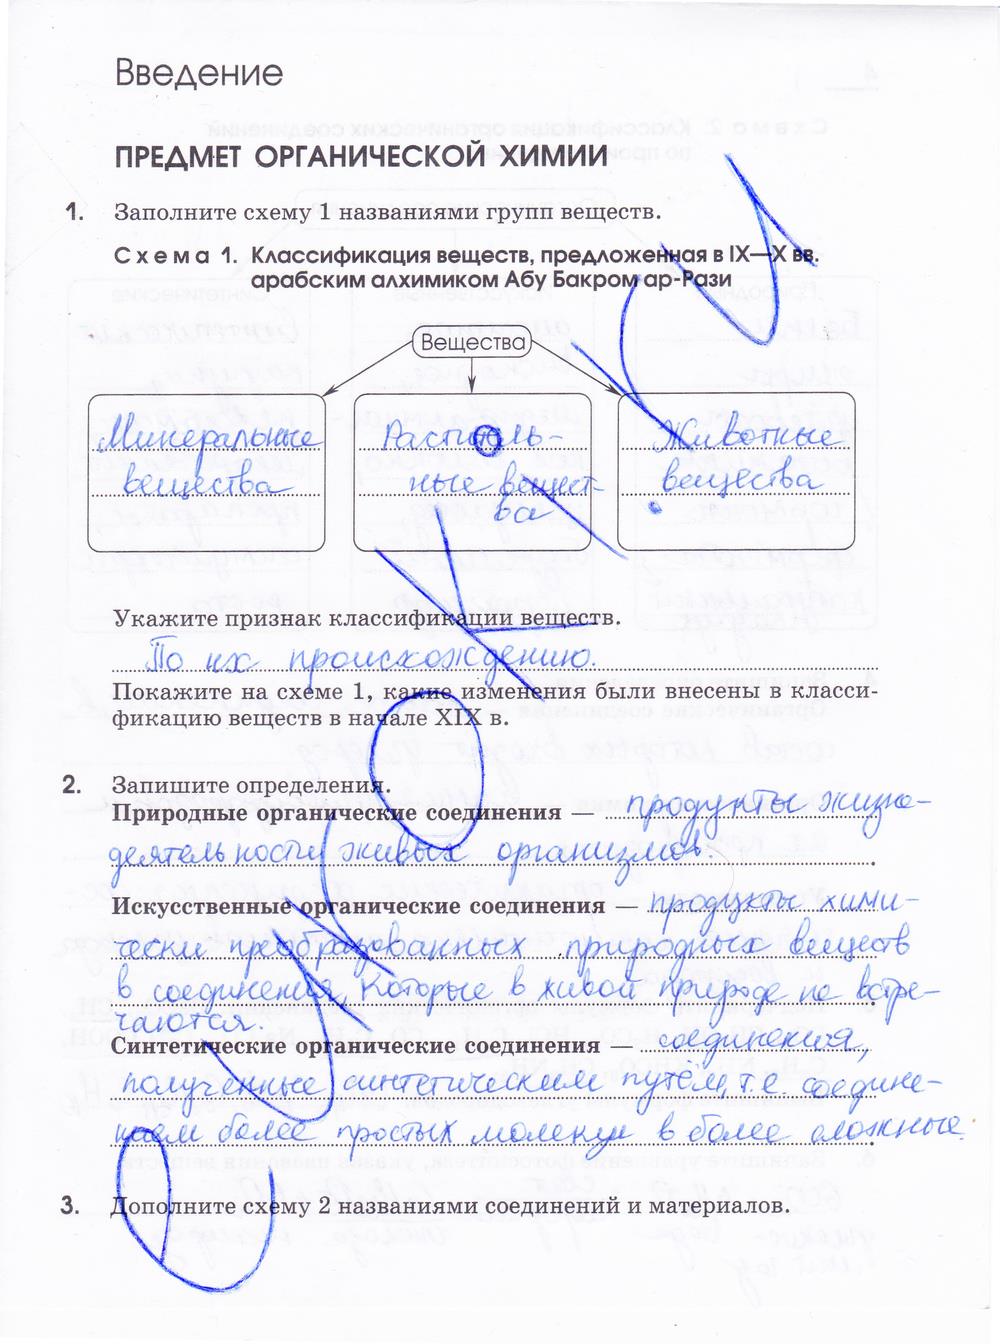 Введение
ПРЕДМЕТ ОРГАНИЧЕСКОЙ ХИМИИ
1. Заполните схему 1 названиями групп веществ.
Схема 1. Классификация веществ, предложенная в IX—X вв.
арабским алхимиком Абу Бакром ар-Рази
Вещества
Минеральные
вещества
Раститель-
ные вещест-
ва
Животные
вещества
Укажите признак классификации веществ.
По их происхождению.
Покажите на схеме 1, какие изменения были внесены в класси-
фикацию веществ в начале XIX в.
2. Запишите определения.
Природные органические соединения — продукты жизне-
деятельности живых организмов.
Искусственные органические соединения — продукты хими-
чески преобразованных природных веществ
в соединения, которые в живой природе не встре-
чаются.
Синтетические органические соединения — соединения,
полученные синтетическим путём, т.е соедине-
нием более простых молекул в более сложные.
3. Дополните схему 2 названиями соединений и материалов.